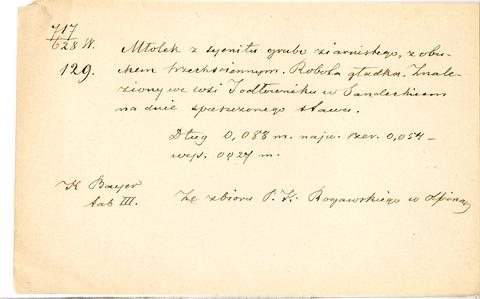 717
628 W.
129.
Młotek z syenitu grubo ziarnistego, z obu-
chem trzechściennym. Robota gładka. Znale-
ziony we wsi Jodłowniku w Sandeckiem
na dnie spuszczonego stawu.
Dług 0,088 m. najw. szer. 0,054 –
wys. 0027 m.
K Bayer
tab III.
Ze zbioru P. K. Rogawskiego w